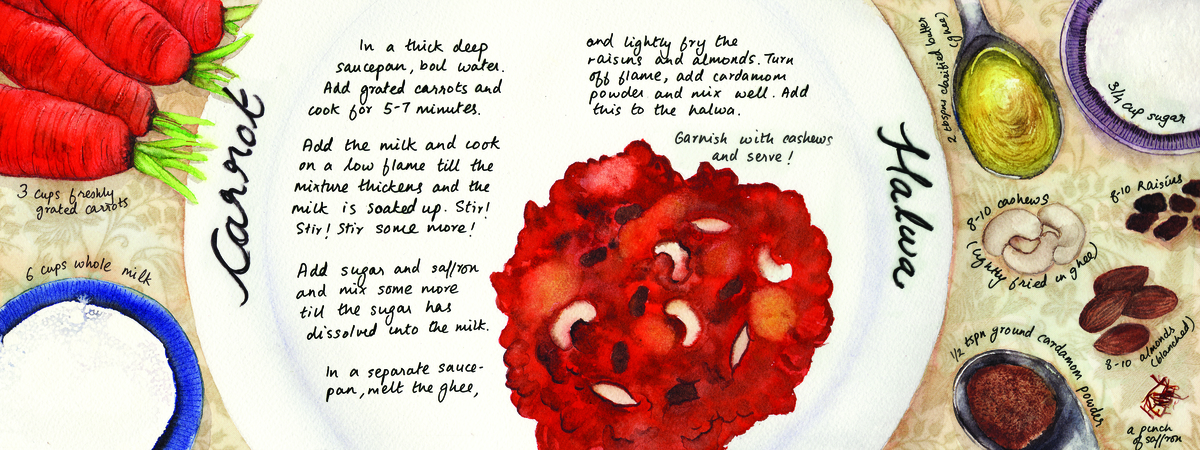 3 cups freshly
grated carrots
6 cups whole milk
Carrot
In a thick deep
saucepan, boil water.
Add grated carrots and
cook for 5-7 minutes.
Add the milk and cook
on a low flame till the
mixture thickens and the
milk is soaked up. Stir!
Stir! Stir some more!
Add sugar and saffron
and mix some more
till the sugar has
dissolved into the milk.
In a separate sauce-
pan, melt the ghee,
and lightly fry the
raisins and almonds. Turn
off flame, add cardamom
powder and mix well. Add
this to the halwa.
Garnish with cashews
and serve!
Halwa
2 tbspns clarified butter
(ghee)
3/4 cup sugar
8-10 cashews
(lightly fried in ghee)
8-10 Raisins
8-10 almonds
(blanched)
1/2 tspn ground cardamom powder
a pinch
of saffron